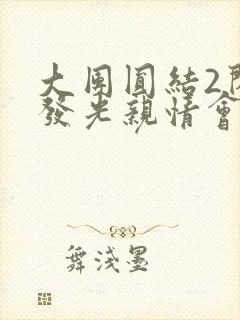 大團圓結2閃
發光親情會
舞淺墨